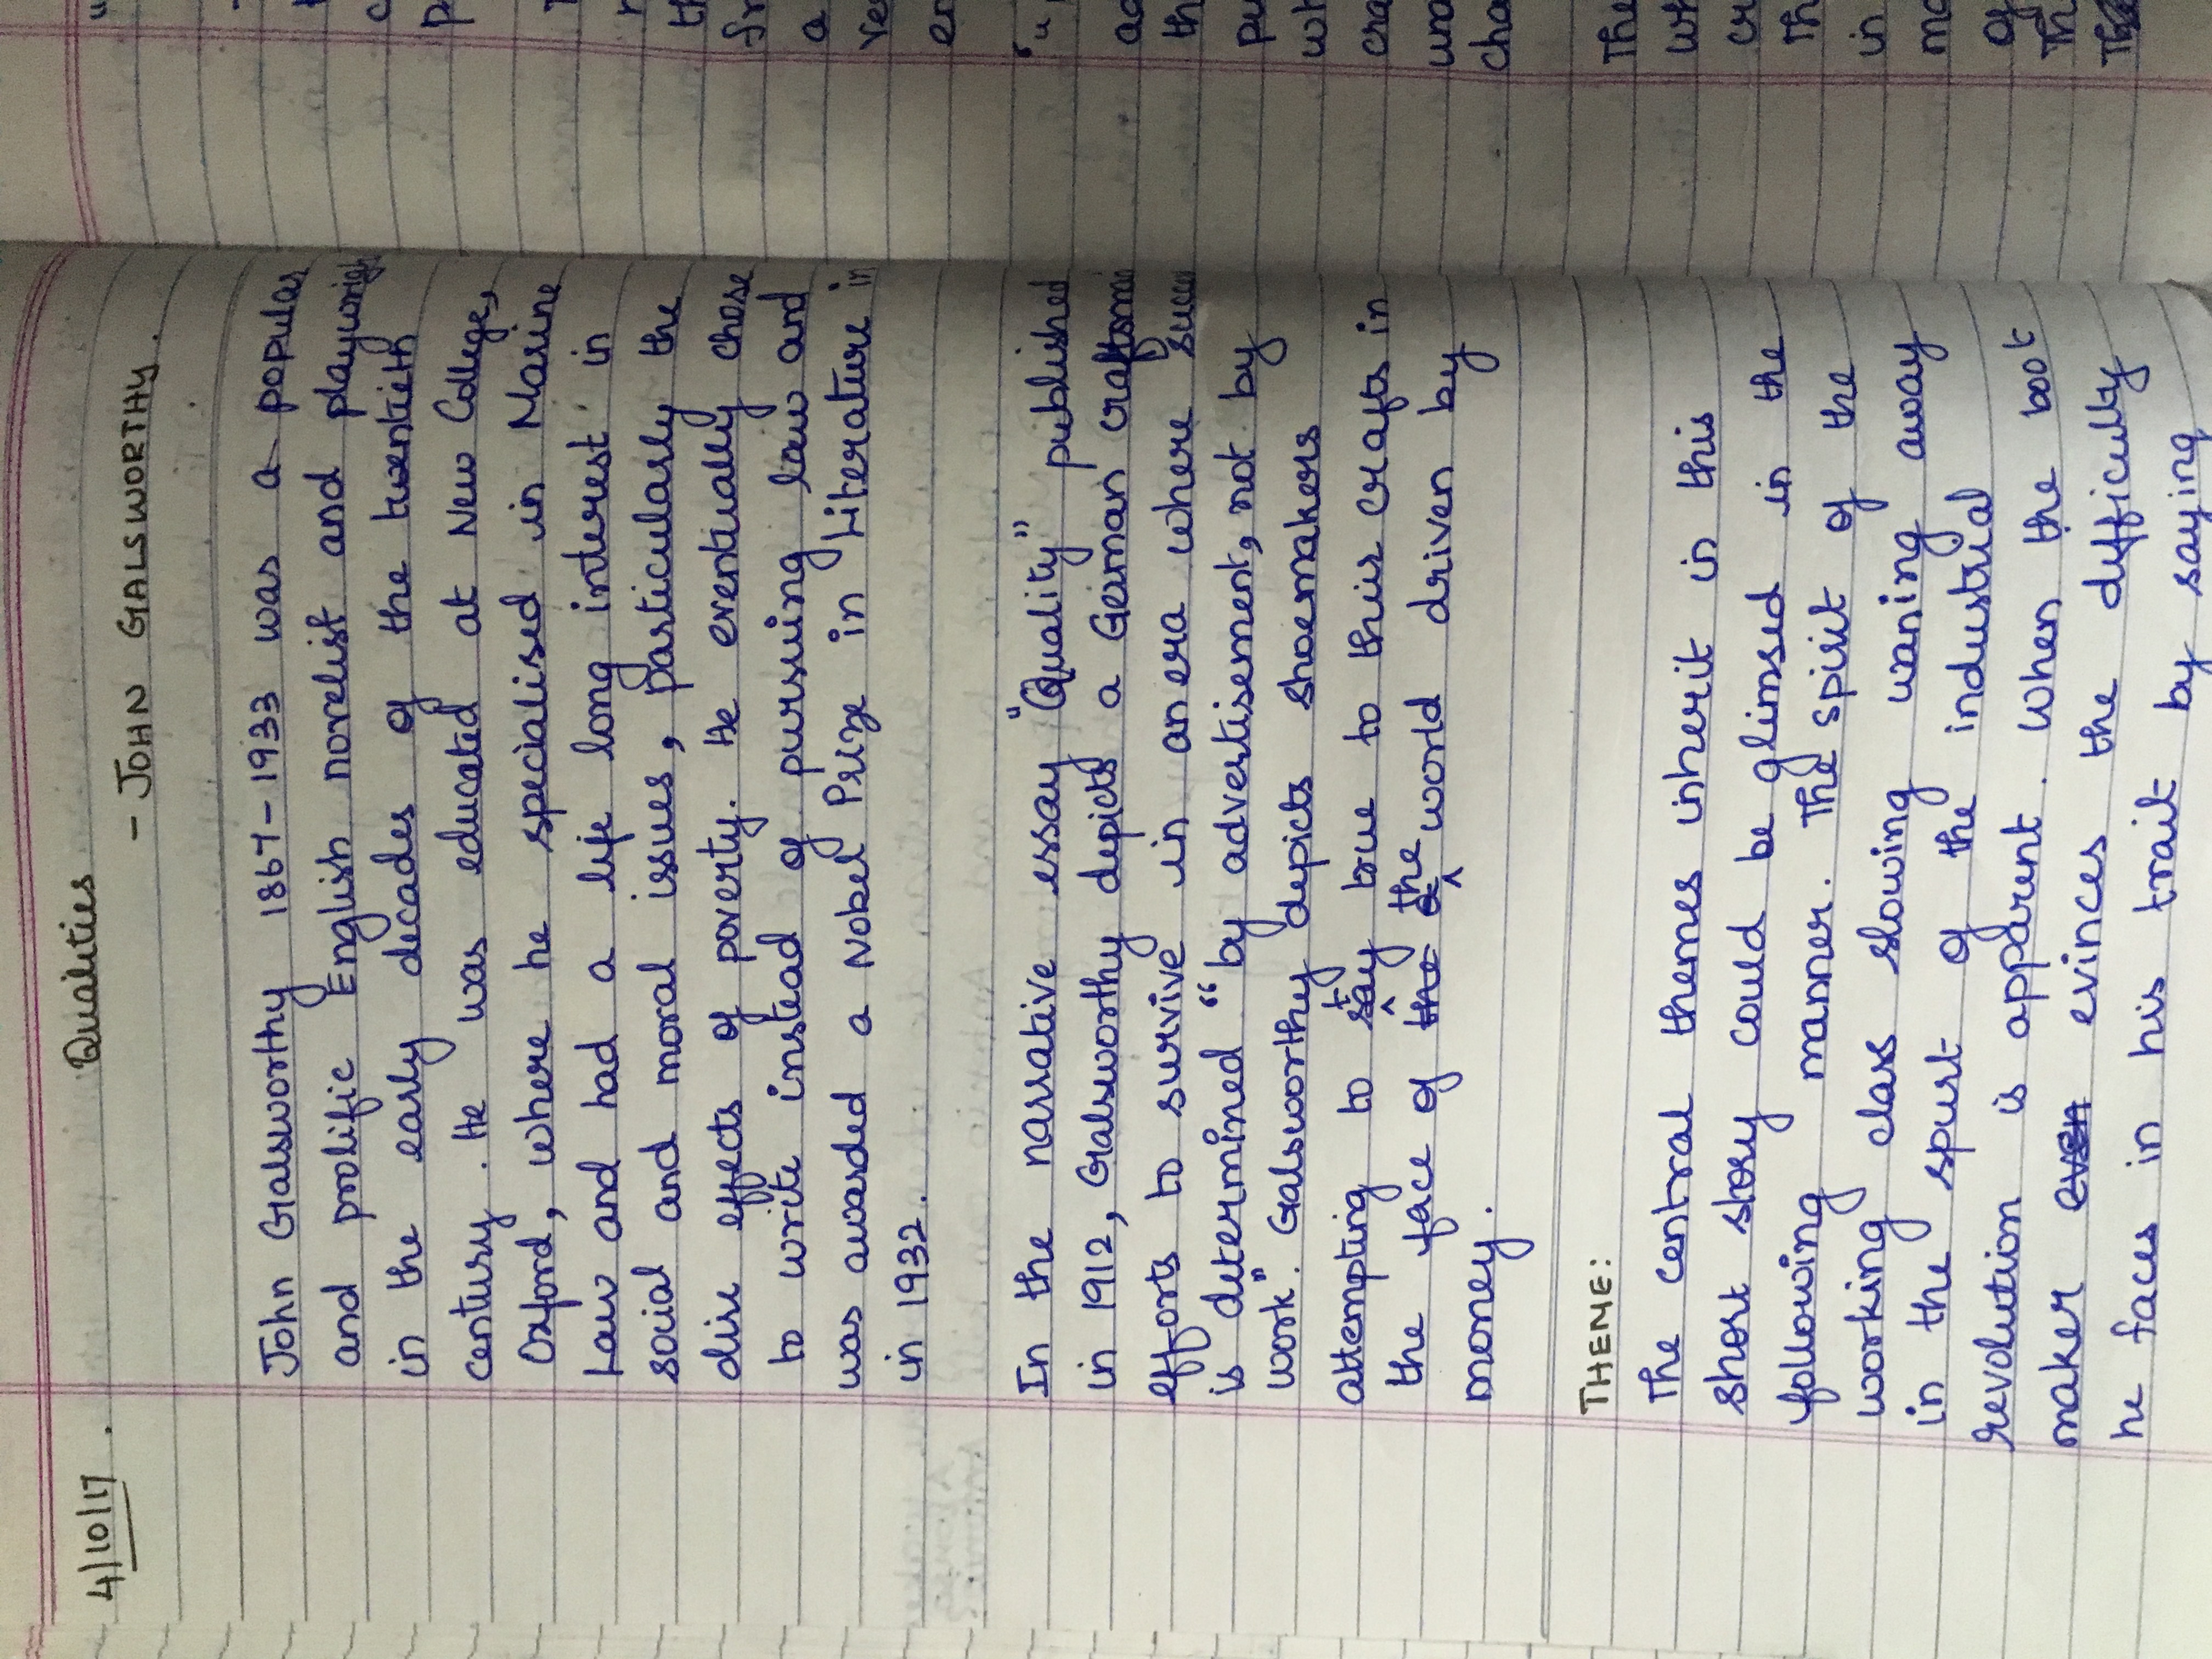 4/10/17 .
Qualities
- JOHN GALSWORTHY .
John Galsworthy 1867-1933 was a popular
and prolific English novelist and playwrigh
in the early decades of the twentieth
century . He was educated at New College,
Oxford, where he specialised in Marine
Law and had a life long interest in
social and moral issues, particularly the
dire effects of poverty. He eventually chose
to write instead of pursuing law and
was awarded a Nobel Prize in Literature in
in 1932.
In the narrative essay "Quality" published
in 1912, Galsworthy depicts a German craftsman
efforts to survive in an era where
is determined "by advertisement, not by
work". Galsworthy depicts shoemakers
attempting to stay true to their crafts in
the face of the world driven by
money .
THEME:
The central themes inherit in this
short story could be glimsed in the
following manner. The spirit of the
working class slowing waning away
in the spurt of the industrial
revolution is apparent. When the boot
maker even evinces the difficulty
he faces in his trait by saying